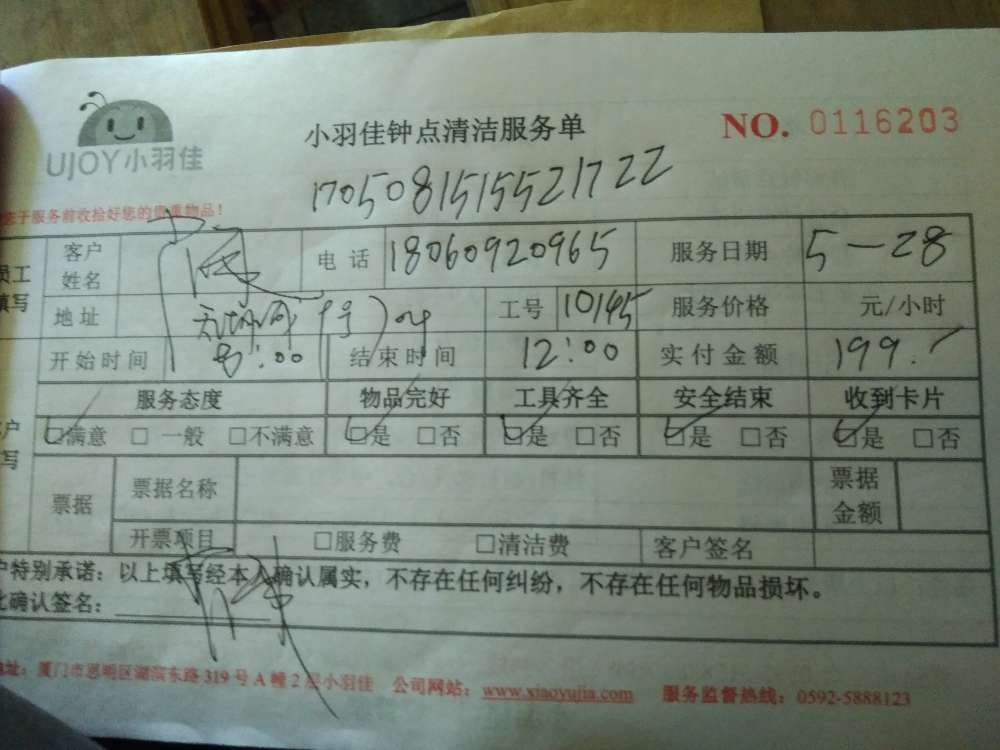 UJOY小羽佳
小羽佳钟点清洁服务单
NO. 0116203
17050815155521722
于服务前收拾好您的贵重物品！
员工填写
客户姓名 电话 18060920965 服务日期 5-28
地址 工号 10145 服务价格 元/小时
开始时间 8:00 结束时间 12:00 实付金额 199.
服务态度 物品完好 工具齐全 安全结束 收到卡片
☑满意 □一般 □不满意 ☑是 □否 ☑是 □否 ☑是 □否 ☑是 □否
票据 票据名称 票据金额
开票项目 □服务费 □清洁费 客户签名
户特别承诺：以上填写经本人确认属实，不存在任何纠纷，不存在任何物品损坏。
此确认签名：
地址：厦门市思明区湖滨东路319号A幢2层小羽佳 公司网站：www.xiaoyujia.com 服务监督热线：0592-5888123